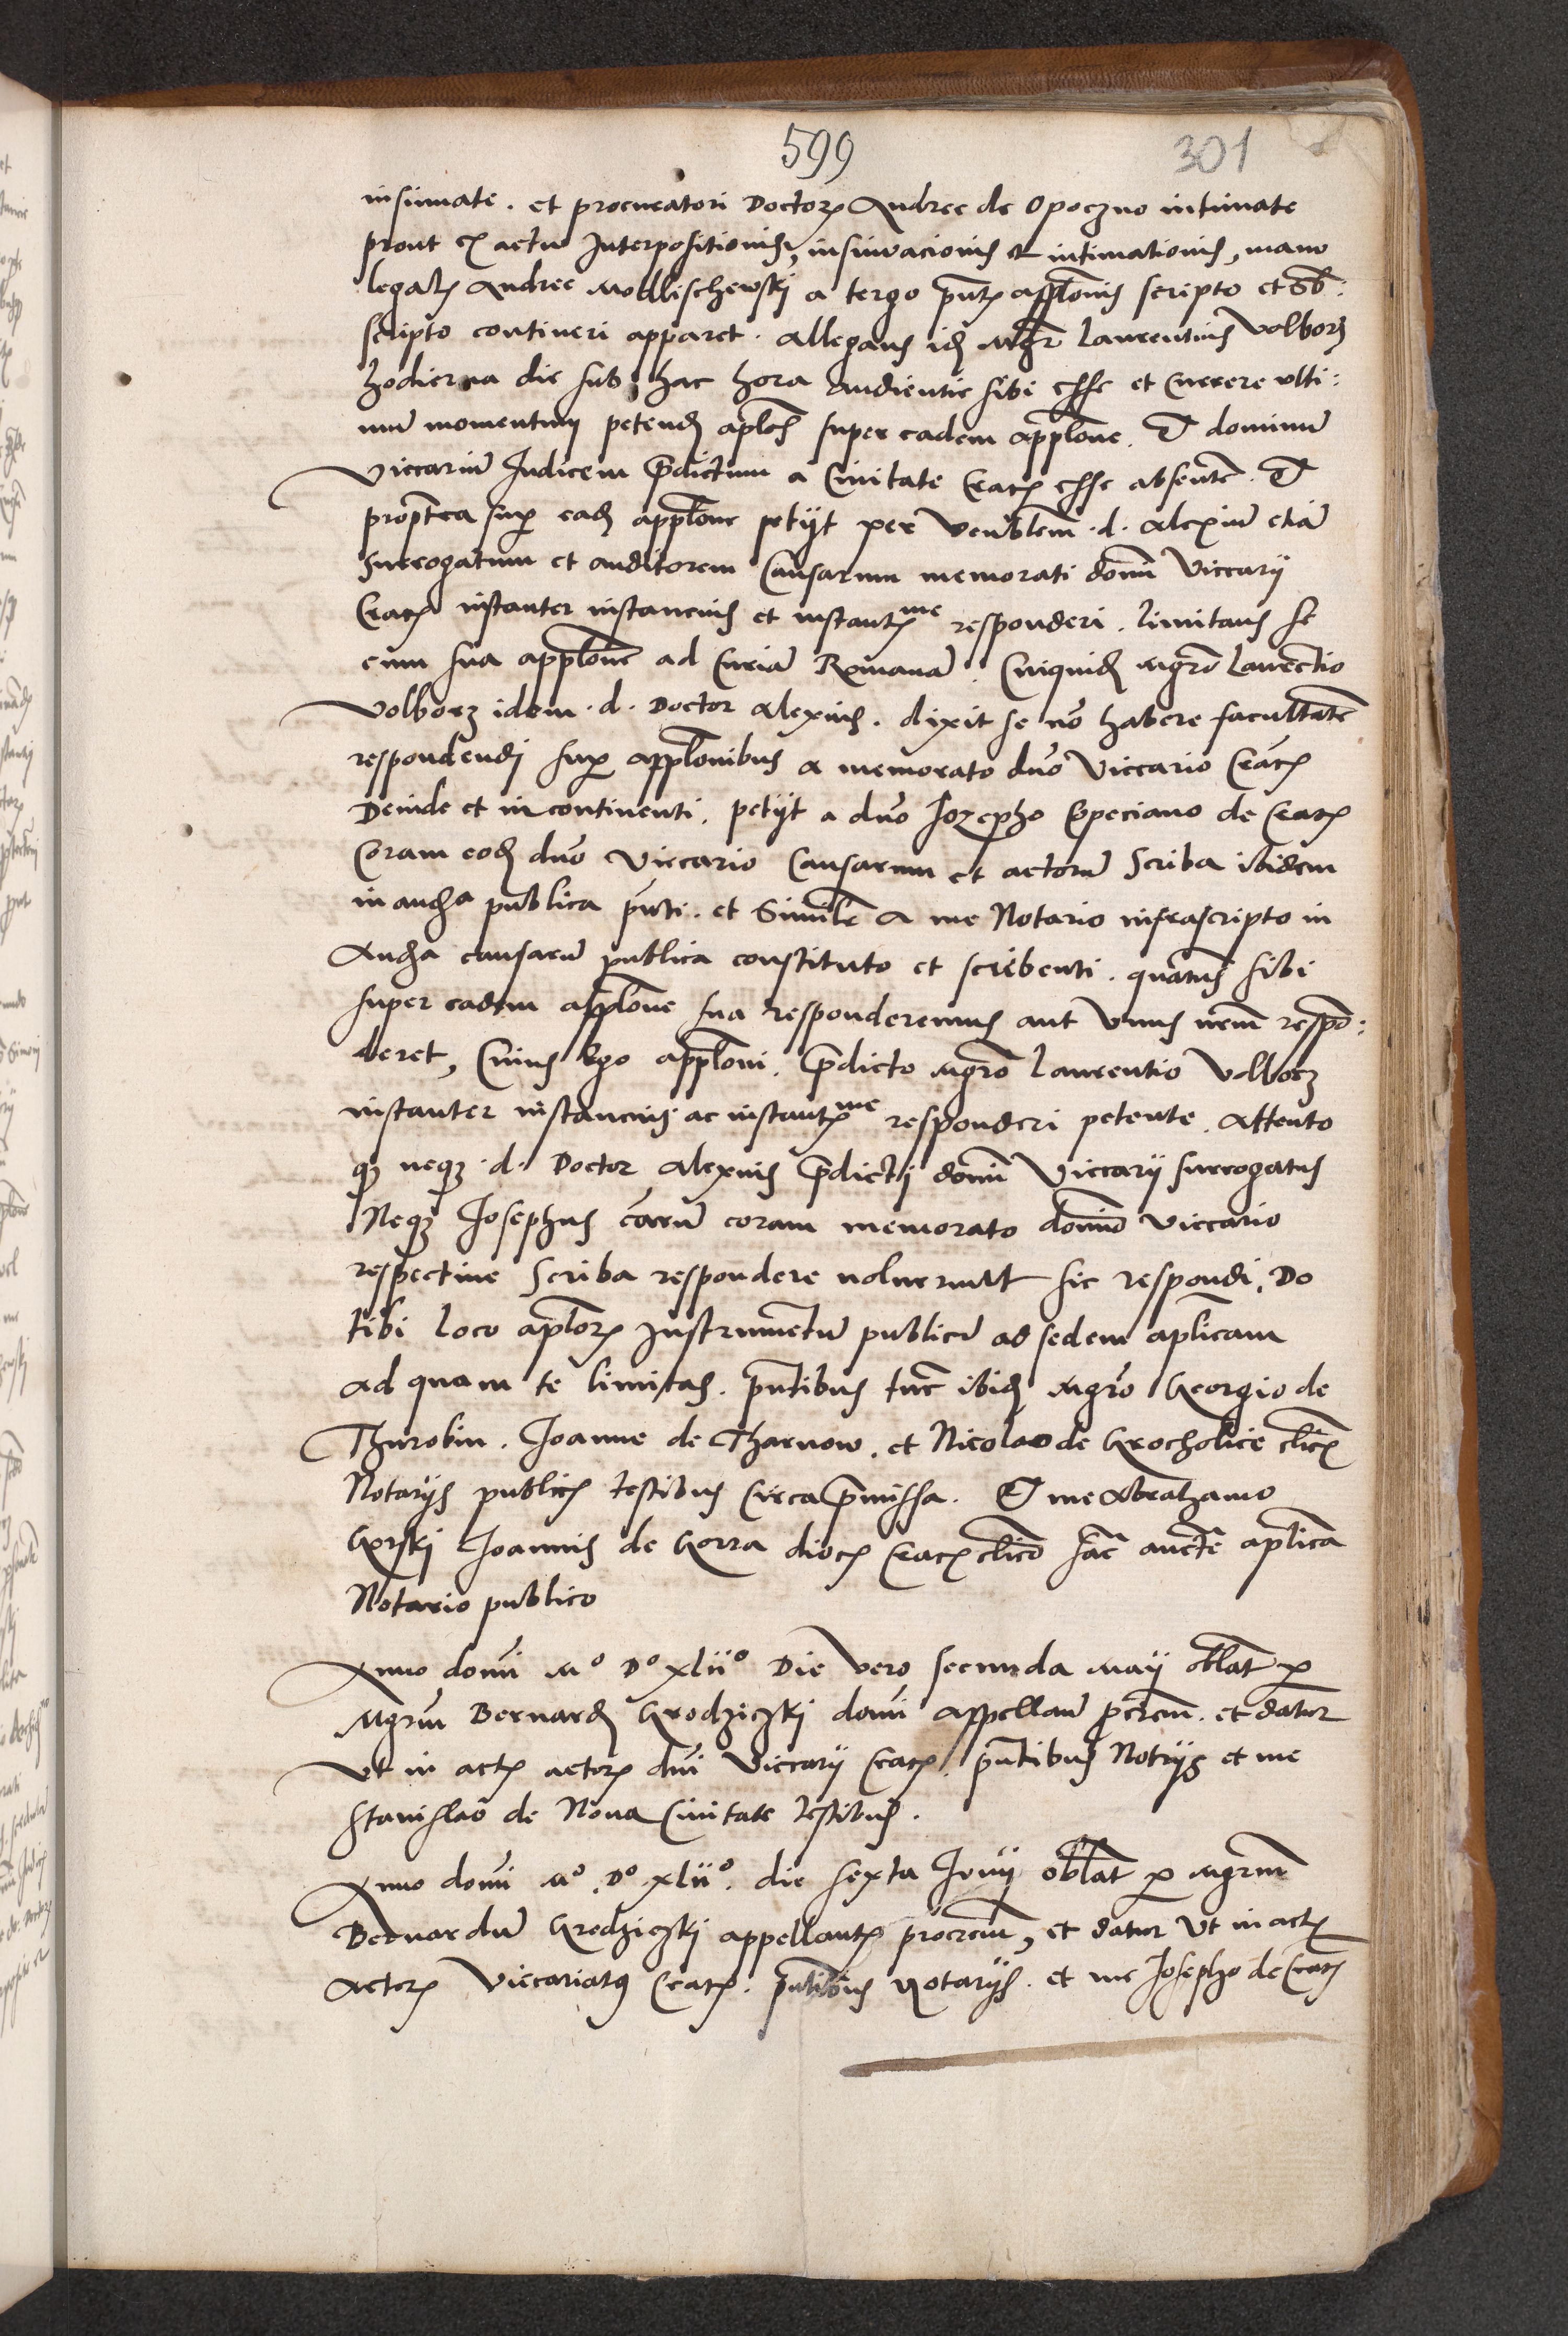 599
301
insinuate . et procuratori Doctorꝭ Andree de Opoczno intimate
prout ex actu Interpositionis, insinuacionis et intimationis, manu
legatꝭ Andree Modlischewski a tergo pn̄tꝭ applōnis scripto et sb:
scripto contineri apparet . Allegans idꝫ Mgr̄ Laurentius Volborz
hodierna die sub hac hora Audientie sibi esse et Currere ulti:
mū momentum petendꝭ aplōs super eadem applōne . Et dominū
Viccariū Iudicem p̄dictum a Civitate Cracꝭ esse absentē . Et
propterea suꝑ eadꝫ applōne petijt per Venblem̄ .d. Alexiū etiā
Surrogatum et auditorem Causarum memorati domī Viccarij
Cracꝭ instanter instancius et instantꝭme responderi . limitans se
cum sua applōne ad Curiā Romanā . Cuiquidꝫ Mgrō Laurētio
Volborz idem .d. Doctor Alexius . dixit se nō habere facultatē
respondendi suꝑ applōnibus a memorato dn̄o Viccario Cracꝭ
Deinde et incontinenti . petijt a dn̄o Iozepho Speciano de Cracꝭ
Coram eodꝫ dn̄o Viccario Causarum et actorū Scriba ibidem
in audꝫa publica pn̄ti . et Similr̄ a me Notario infrascripto in
Audꝫa causarū publica constituto et scribenti . quatn̄s sibi
super eadem applōne sua responderemus aut Unus nr̄m respō:
deret, Cuius Ego applōni . p̄dicto Mgrō Laurentio Volborz
instanter instancius ac instantꝭme responderi petente . Attento
qꝫ neqꝫ .d. Doctor Alexius p̄dicti domī Viccarij surrogatus
Neqꝫ Iosephus cārū coram memorato domīo Viccario
respective Scriba respondere noluerunt sic respondi . Do
tibi loco aplōrꝭ Instrumentū publicū ad sedem aplicam
ad quam te limitas . pn̄tibus tūc ibidꝫ Mgrō Georgio de
Thurobin . Joanne de Tharnow . et Nicolao de Grocholice clīcꝭ
Notarijs publicꝭ testibus Circa p̄missa . Et me Abrahamo
Gorski Joannis de Gorra diocꝭ Cracꝭ clīco sac̄ auctē aplica
Notario publico
Anno domī Mº Dº xlijº Die Vero secunda Maij oblat̄ ꝑ
Mgrūm Bernardꝫ Grodziczki domī appellan̄ prērem̄ . et datur
Ut in actꝭ actorꝭ dn̄i Viccarij Cracꝭ . pn̄tibus Notrijs et me
Stanislao de Nova Civitate testibus .
Anno domī Mº . Dº . xlijº . die sexta Junij oblat̄ ꝑ Mgrūm
Bernardū Grodziczki appellantꝭ procrem̄, et datur Ut in actꝭ
actorꝭ Viccariatꝰ Cracꝭ . pn̄tibus Notarijs . et me Josepho de Cracꝭ